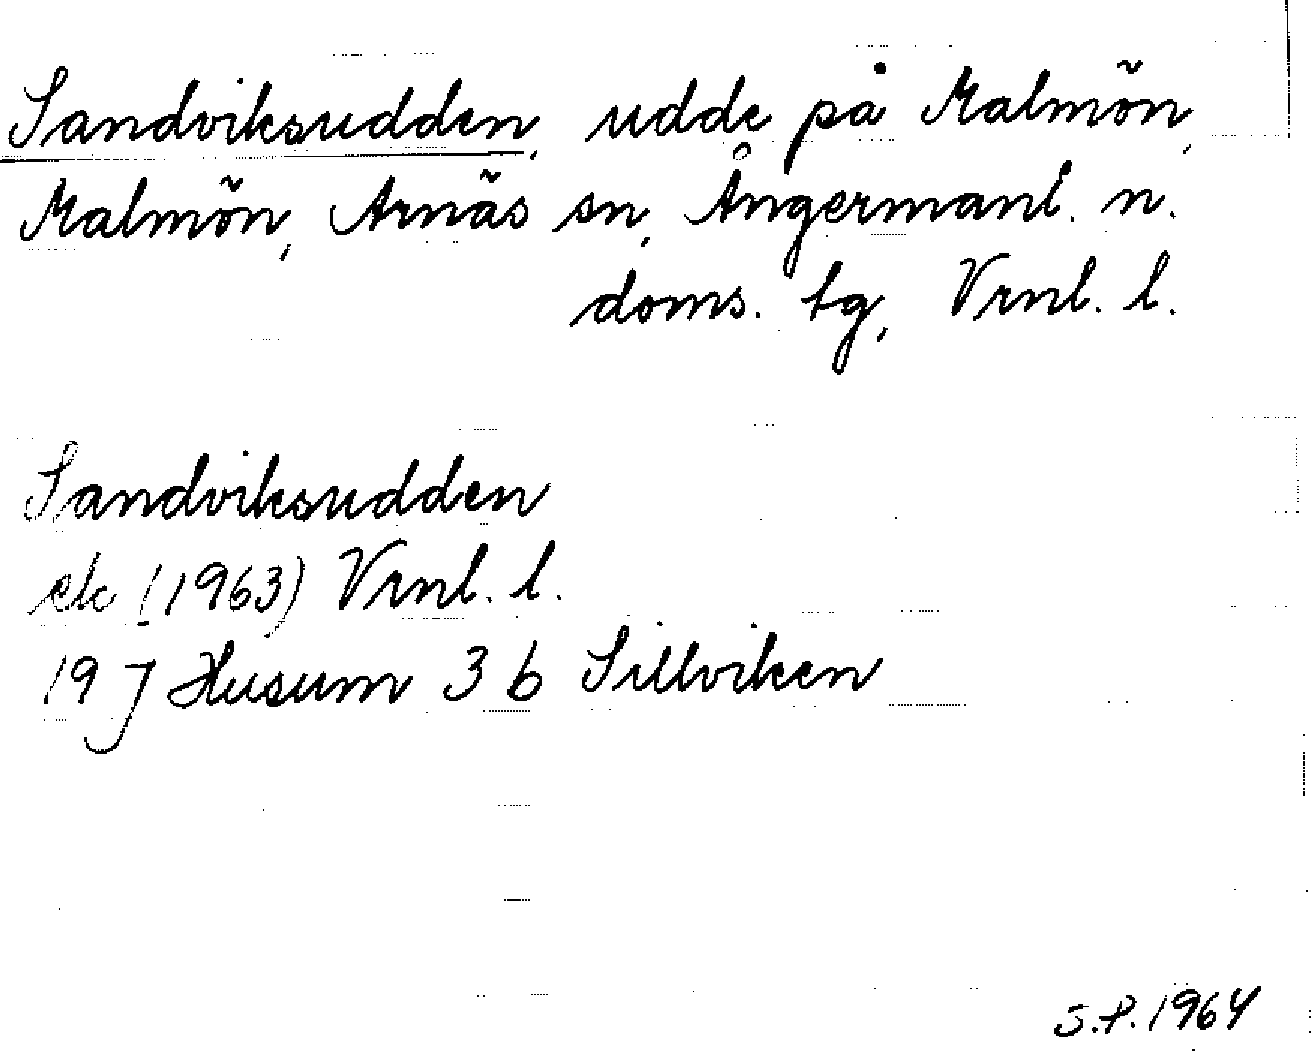 Sandviksudden, udde på Malmön,
Malmön, Arnäs sn, Ångermanl. n.
doms. tg, Vrnl. l.
Sandviksudden
ek (1963) Vrnl. l.
19 J Husum 3 b Sillviken
S.P. 1964